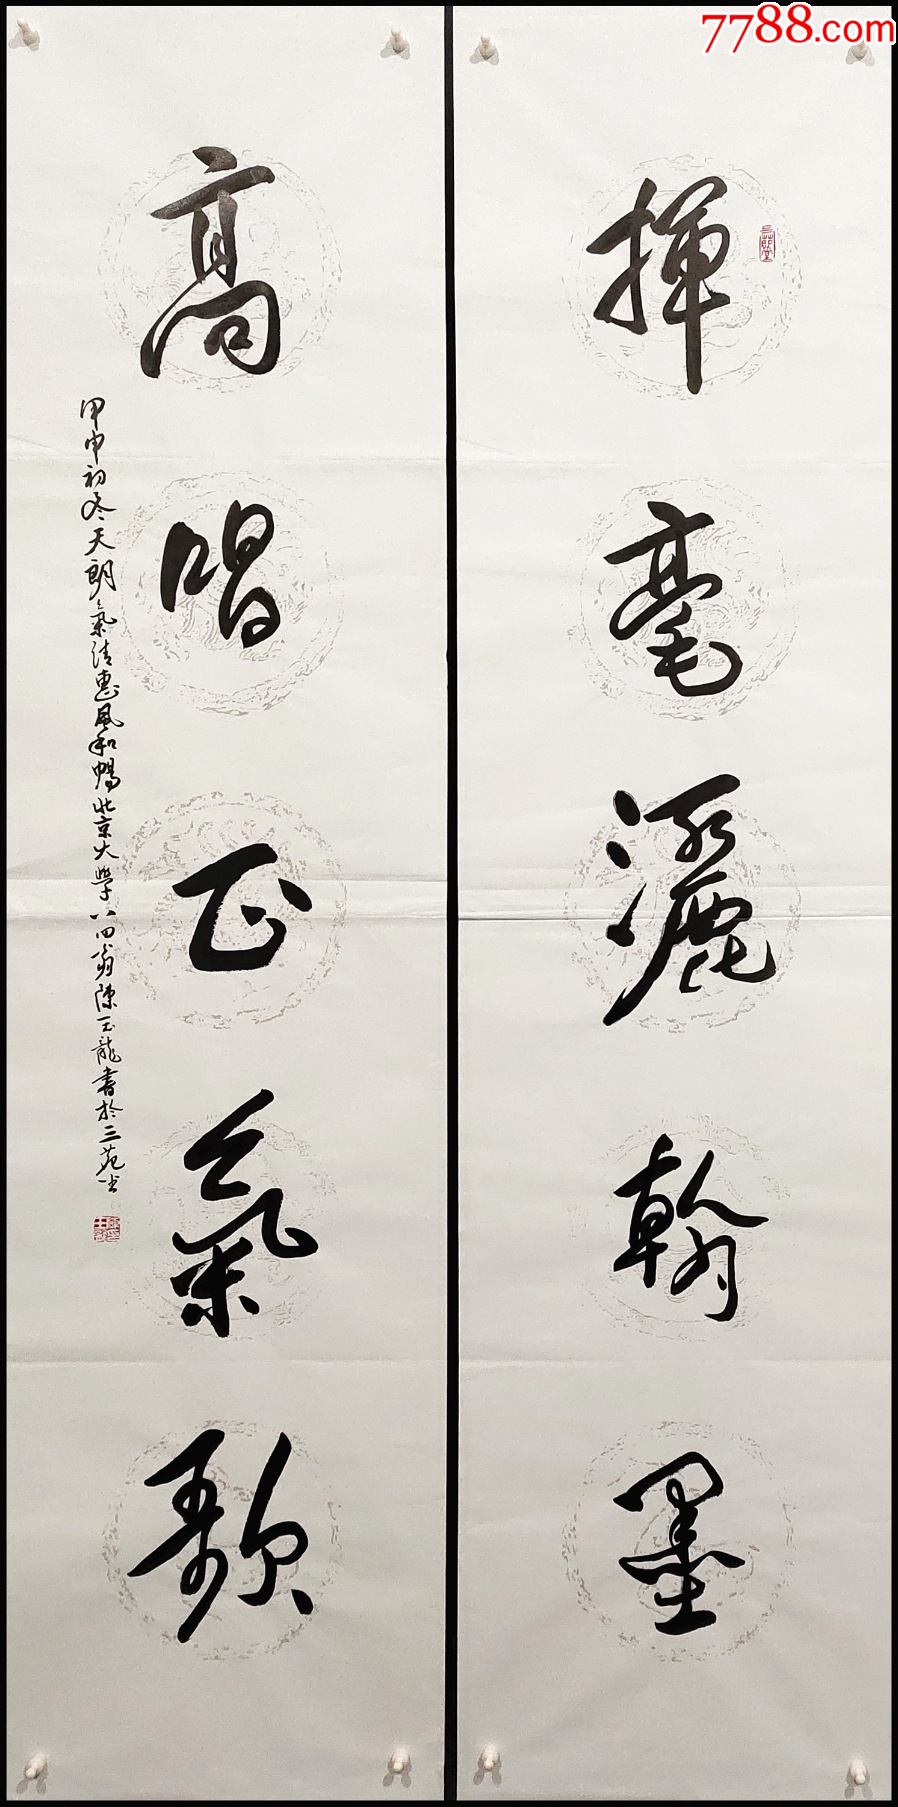 7788.com
揮毫灑翰墨
高唱正氣歌
甲申初冬天朗氣清惠風和暢北京大學八四翁陳玉龍書於三苑